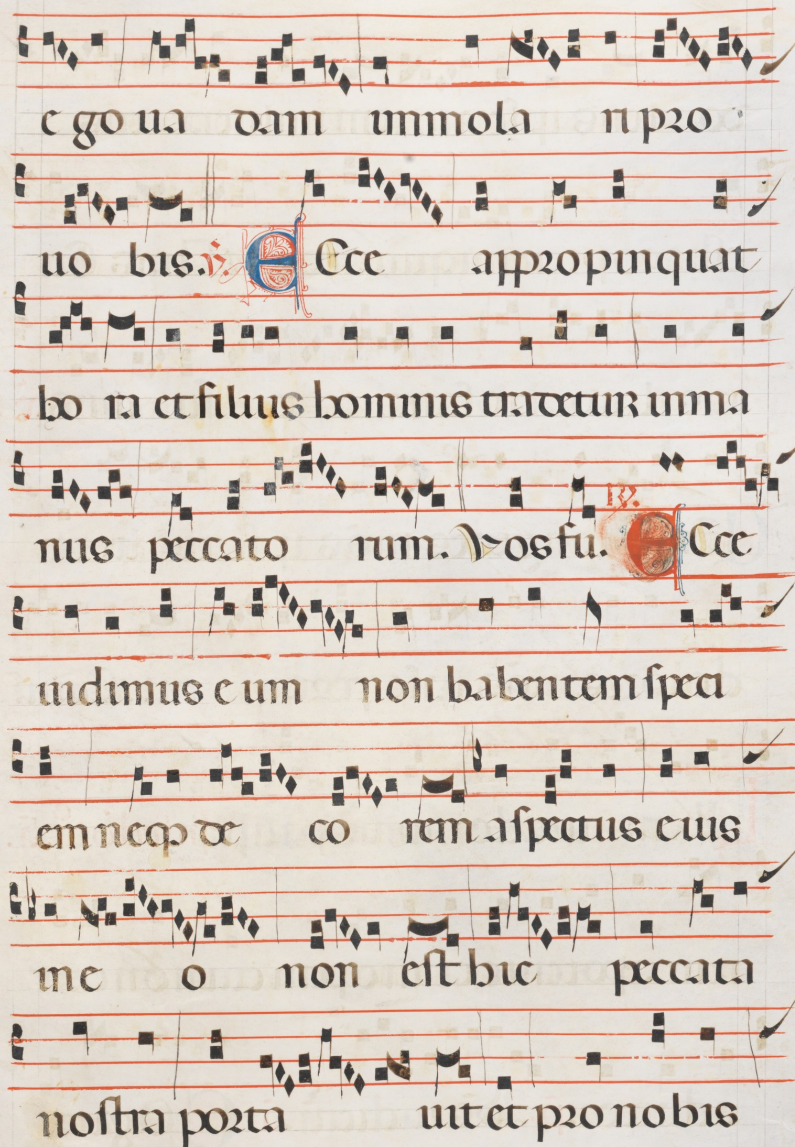 ego va dam immola ri pro
vo bis. ℣. ECce appropinquat
ho ra et filius hominis tradetur in ma
nus peccato rum. Vos fu. ℟. ECce
vidimus e um non habentem speci
em neqꝫ de co rem aspectus eius
in e o non est hic peccata
nostra porta vit et pro no bis